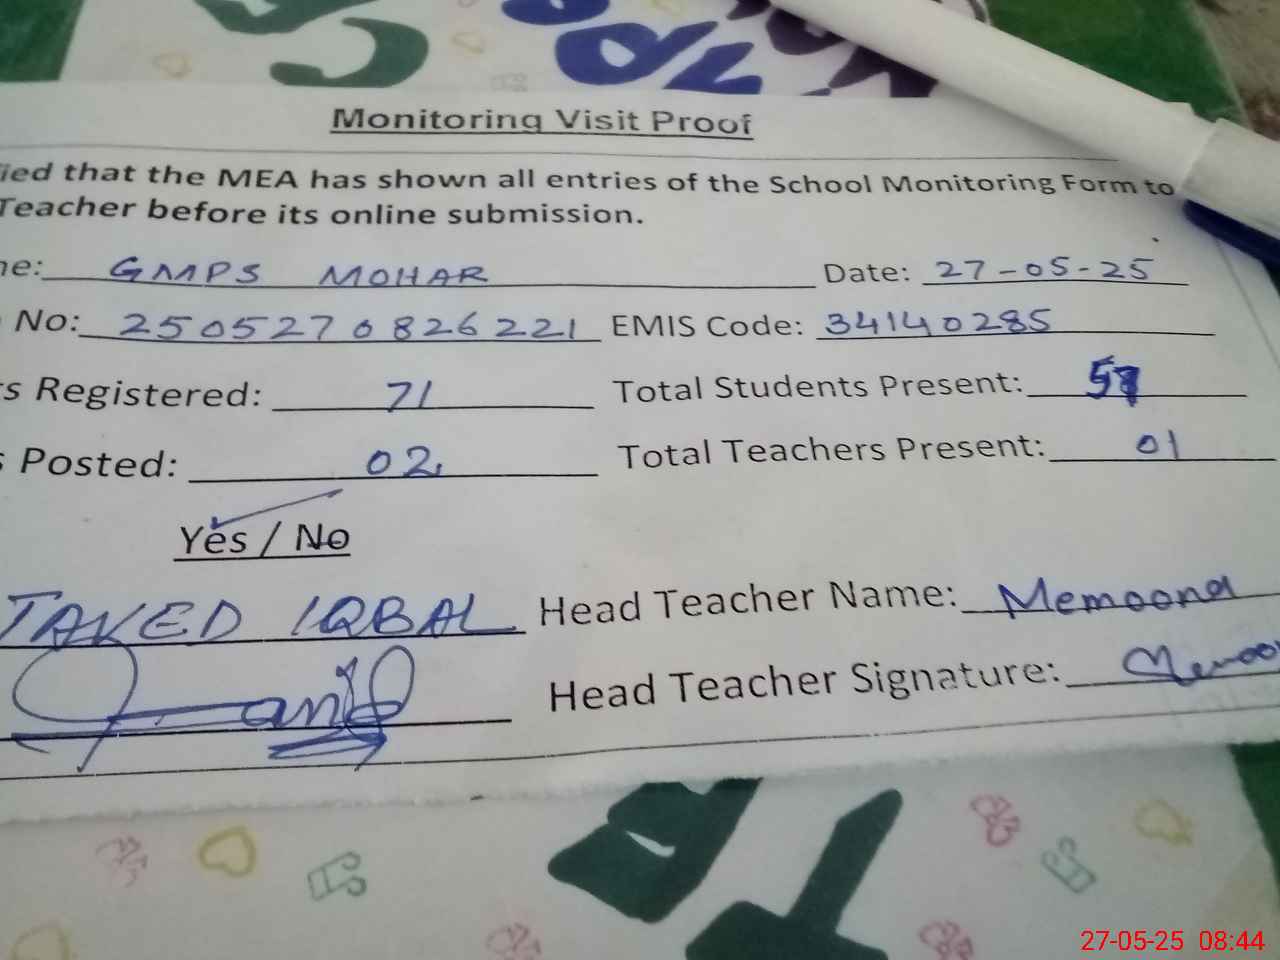 Monitoring Visit Proof
ied that the MEA has shown all entries of the School Monitoring Form to
Teacher before its online submission.
ne: GMPS MOHAR Date: 27-05-25
No: 2505270826221 EMIS Code: 34140285
s Registered: 71 Total Students Present:
s Posted: 02 Total Teachers Present: 01
Yes / No
IQBAL Head Teacher Name: Memoona
Head Teacher Signature:
27-05-25 08:44